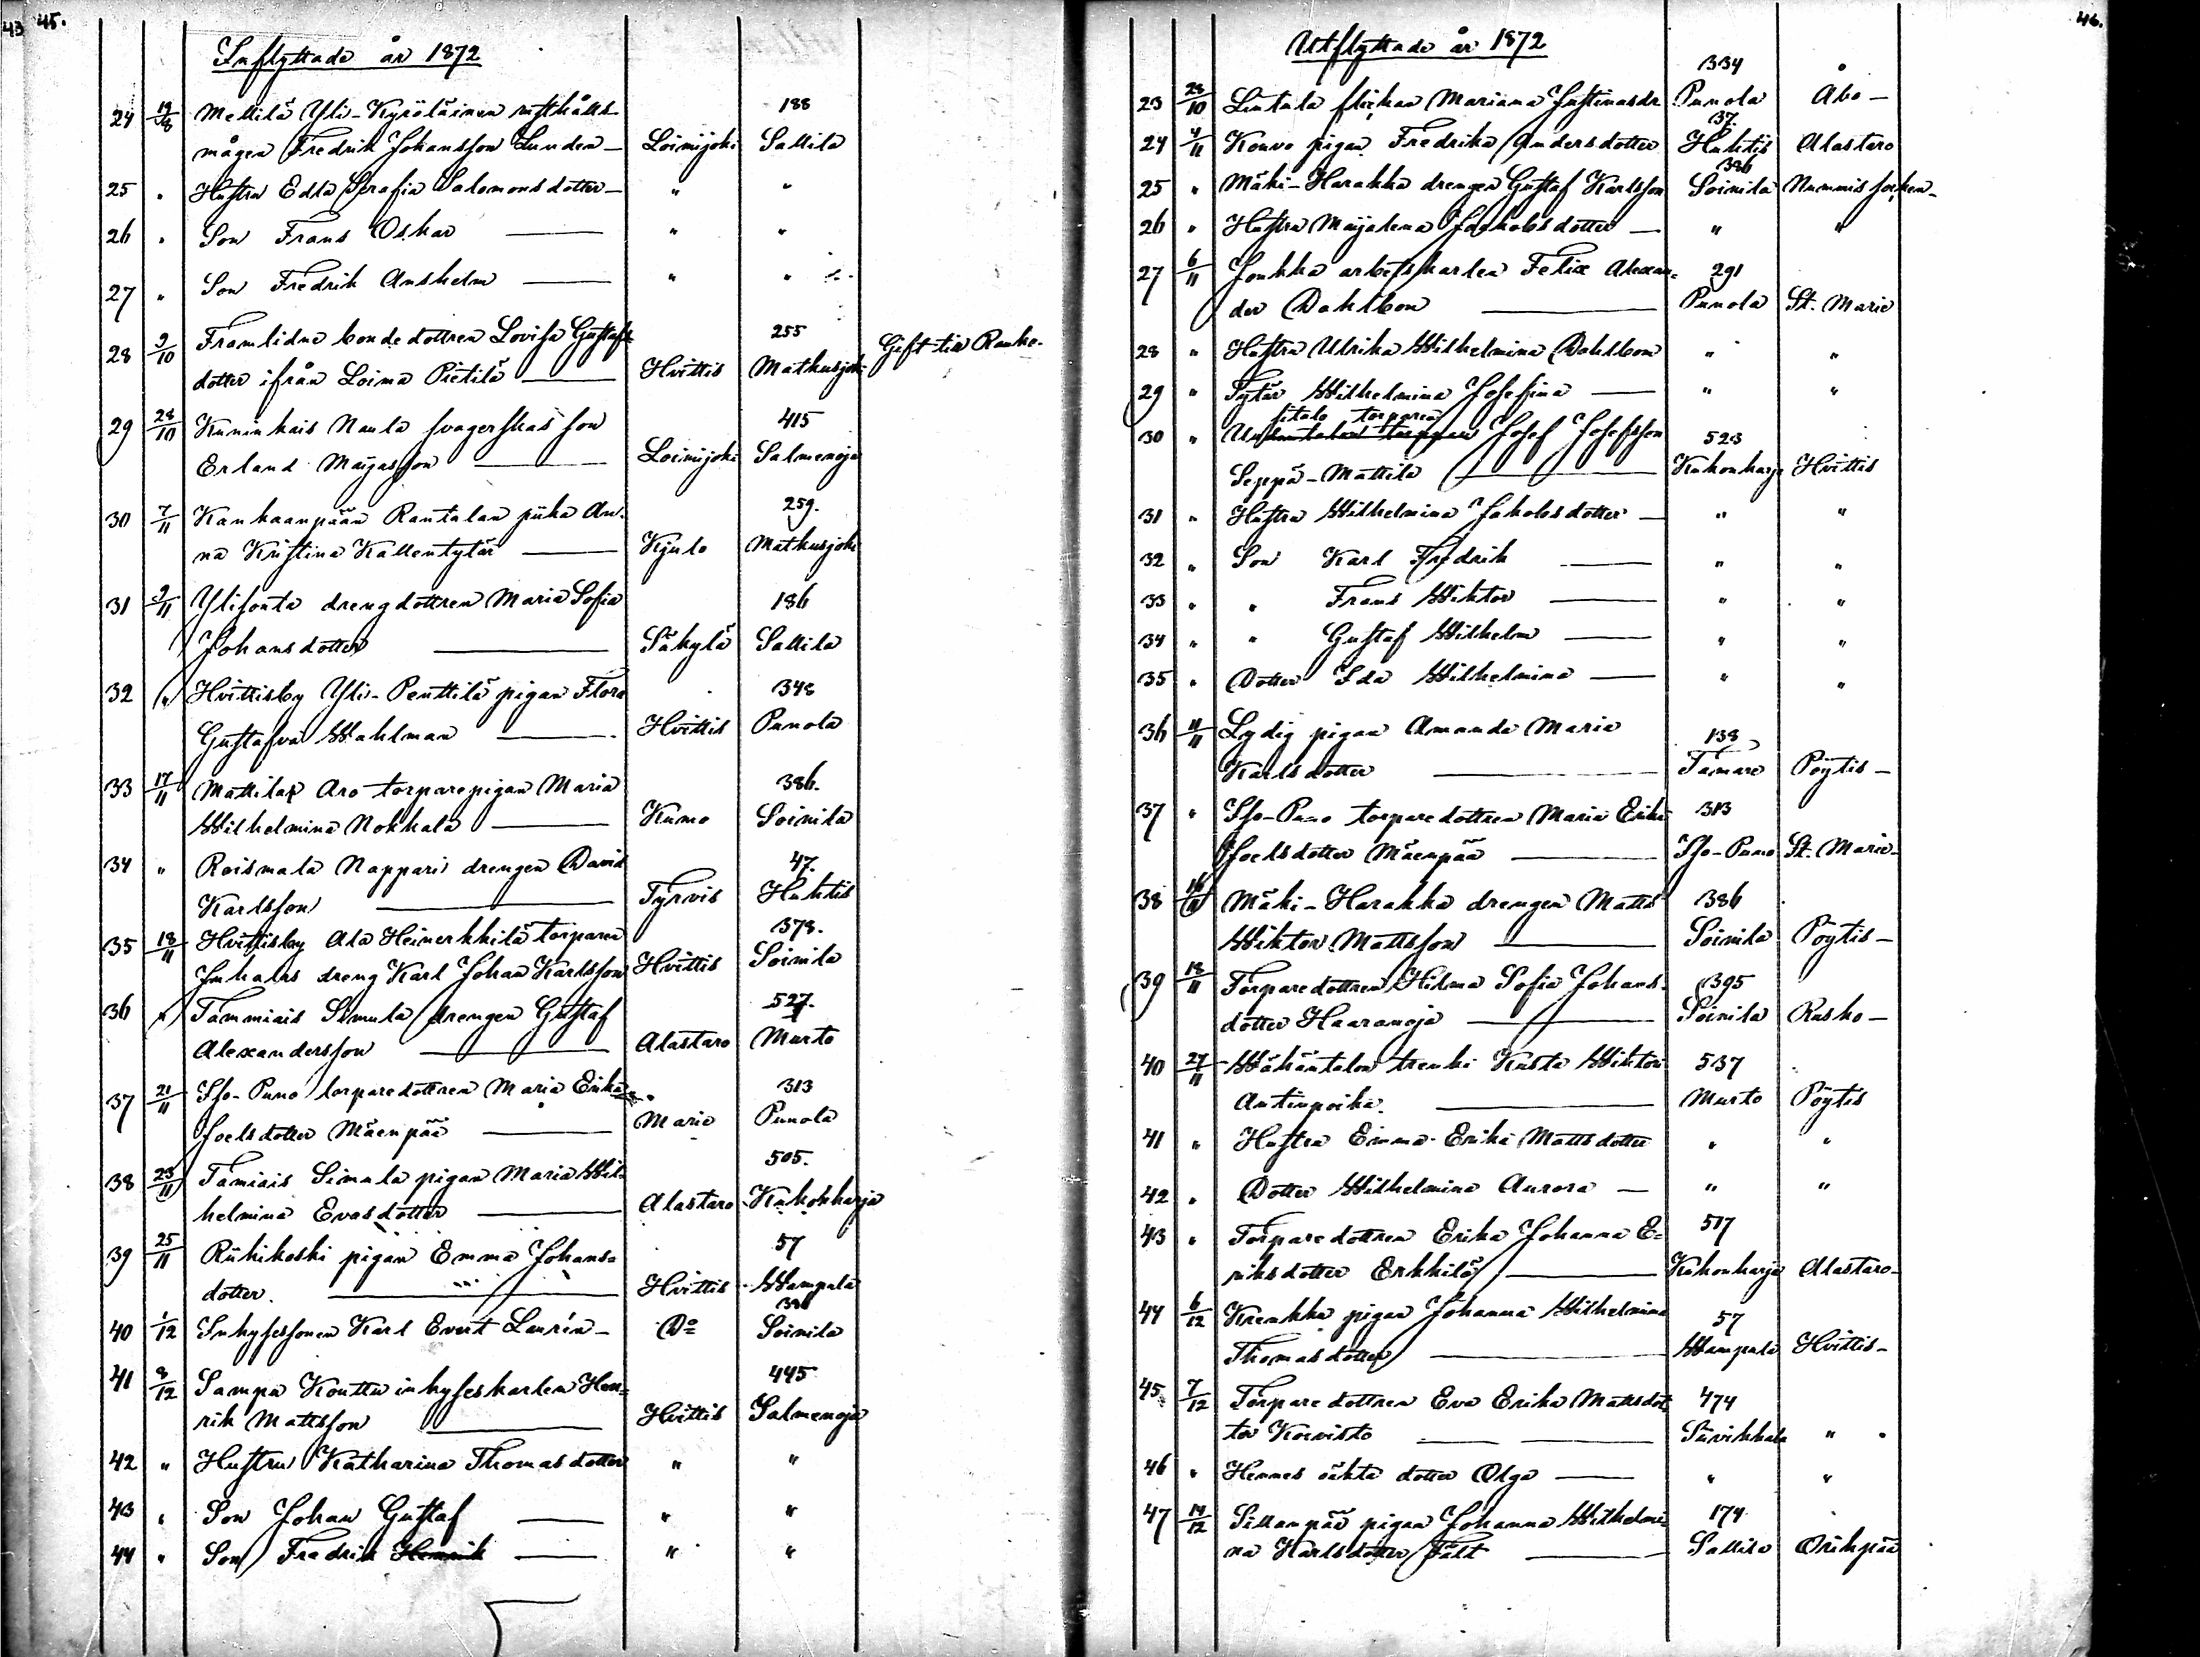 43 45.
Inflyttade år 1872
188
24 19/8 Mellilä Yli-Kyröläinen rusthålls
mågen Fredrik Johansson Lunden — Loimijoki Sallila
25 " Hustru Edla Serafia Salomonsdotter — " "
26 " Son Frans Oskar — " "
27 " Son Fredrik Anshelm — " "
28 9/10 Framlidne bondedottren Lovisa Gustafs 255
dotter ifrån Loima Pietilä — Hvittis Matkusjoki Gift till Rauke.
29 28/10 Kuninkais Naula svagerskas son 415
Erland Maijasson — Loimijoki Salmenoja
30 7/11 Kankaanpään Rantalan piika An- 259.
na Kristina Kallentytär — Kjulo Matkusjoki
31 9/11 Ylisonta drengdottren Maria Sofia 186
Johansdotter — Säkylä Sallila
32 " Hvittisby Yli-Penttilä pigan Flora 348
Gustafva Wahlman — Hvittis Punola
33 17/11 Mattilas Aro torparepigan Maria 386.
Wilhelmina Nokkala — Kumo Soinila
34 " Roismala Nappari drengen David 47.
Karlsson — Tyrvis Huhtis
35 18/11 Hvittisby Ala Heinerkkilä torparen 378.
Juhalas dreng Karl Johan Karlsson Hvittis Soinila
36 " Tammiais Simula drengen Gustaf 527.
Alexandersson — Alastaro Murto
37 21/11 Iso-Puno torparedottren Maria Erika 313
Joelsdotter Mäenpää — Marie Punola
38 23/11 Tamiais Simula pigan Maria Wil- 505.
helmina Evasdotter — Alastaro Kukonharja
39 25/11 Riihikoski pigan Emma Johans- 57
dotter. — Hvittis Wampula
386
40 1/12 Inhysessonen Karl Evert Laurén — Do Soinila
41 9/12 Sampu Konttu inhyseskarlen Hen- 445
rik Mattsson — Hvittis Salmenoja
42 " Hustru Katharina Thomasdotter " "
43 " Son Johan Gustaf — " "
44 " Son Fredrik Henrik — " "
46.
Utflyttade år 1872
334
23 28/10 Lintula flickan Mariana Justinasdr Punola Åbo —
37.
24 4/11 Konvo pigan Fredrika Andersdotter Huhtis Alastaro
386
25 " Mäki-Harakka drengen Gustaf Karlsson Soinila Nummis socken —
26 " Hustru Maijalena Jaakobsdotter — " "
27 6/11 Jonkka arbetskarlen Felix Alexan- 291
der Dahlbom — Punola St. Marie
28 " Hustru Ulrika Wilhelmina Dahlbom " "
29 " Tytär Wilhelmina Josefina — " "
sitalo torparen
30 " Uu Josef Josefsson 523
Seppä-Mattila — Kukonharja Hvittis
31 " Hustru Wilhelmina Jakobsdotter — " "
32 " Son Karl Fredrik — " "
33 " " Frans Wiktor — " "
34 " " Gustaf Wilhelm — " "
35 " Dotter Ida Wilhelmina — " "
36 11/11 Lydig pigan Amanda Maria 138
Karlsdotter — Tamare Pöytis —
37 " Iso-Puno torparedottren Maria Erika 313
Joelsdotter Mäenpää — Iso-Puno St. Marie —
38 16/11 Mäki-Harakka drengen Matts 386
Wiktor Mattsson — Soinila Pöytis —
39 18/11 Torparedottren Hilma Sofia Johans- 395
dotter Haaranoja — Soinila Rusko —
40 27/11 Wähäntalon trenki Kusta Wiktori 537
Antinpoika. — Murto Pöytis
41 " Hustru Emma Erika Mattsdotter " "
42 " Dotter Wilhelmina Aurora — " "
43 " Torparedottren Erika Johanna E- 517
riksdotter Erkkilä — Kukonharja Alastaro —
44 6/12 Krenkka pigan Johanna Wilhelmina 57
Thomasdotter — Wampula Hvittis —
45 7/12 Torparedottren Eva Erika Mattsdot- 474
ter Koivisto — Piivikkala "
46 " Hennes oäkta dotter Olga — " "
47 14/12 Sillanpää pigan Johanna Wilhelmi- 174
na Karlsdotter Fält — Sallila Orihpää